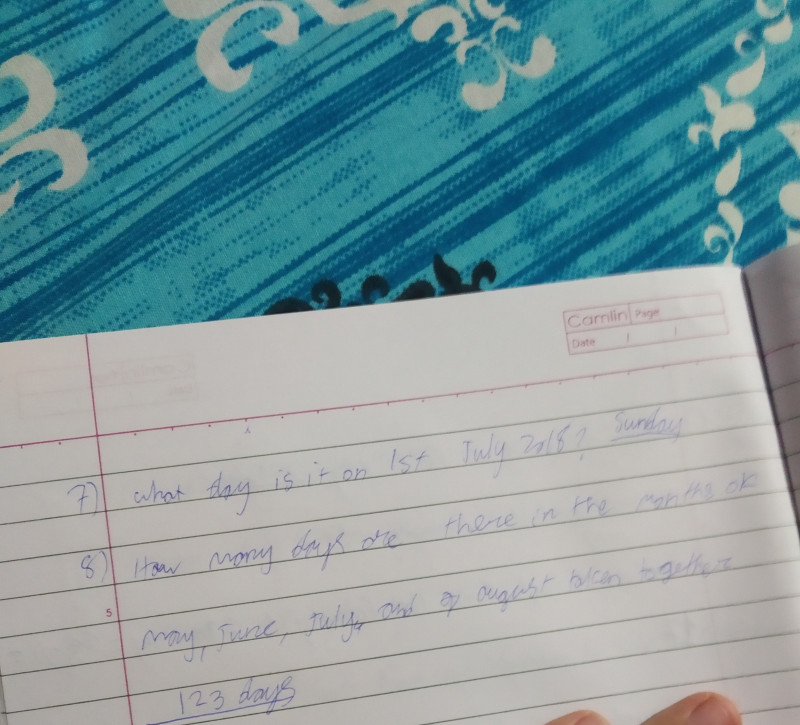 Camlin Page
Date / /
7) what day is it on 1st July 2018? Sunday
8) How many days are there in the months of
5
may, June, July, and of august taken together
123 days